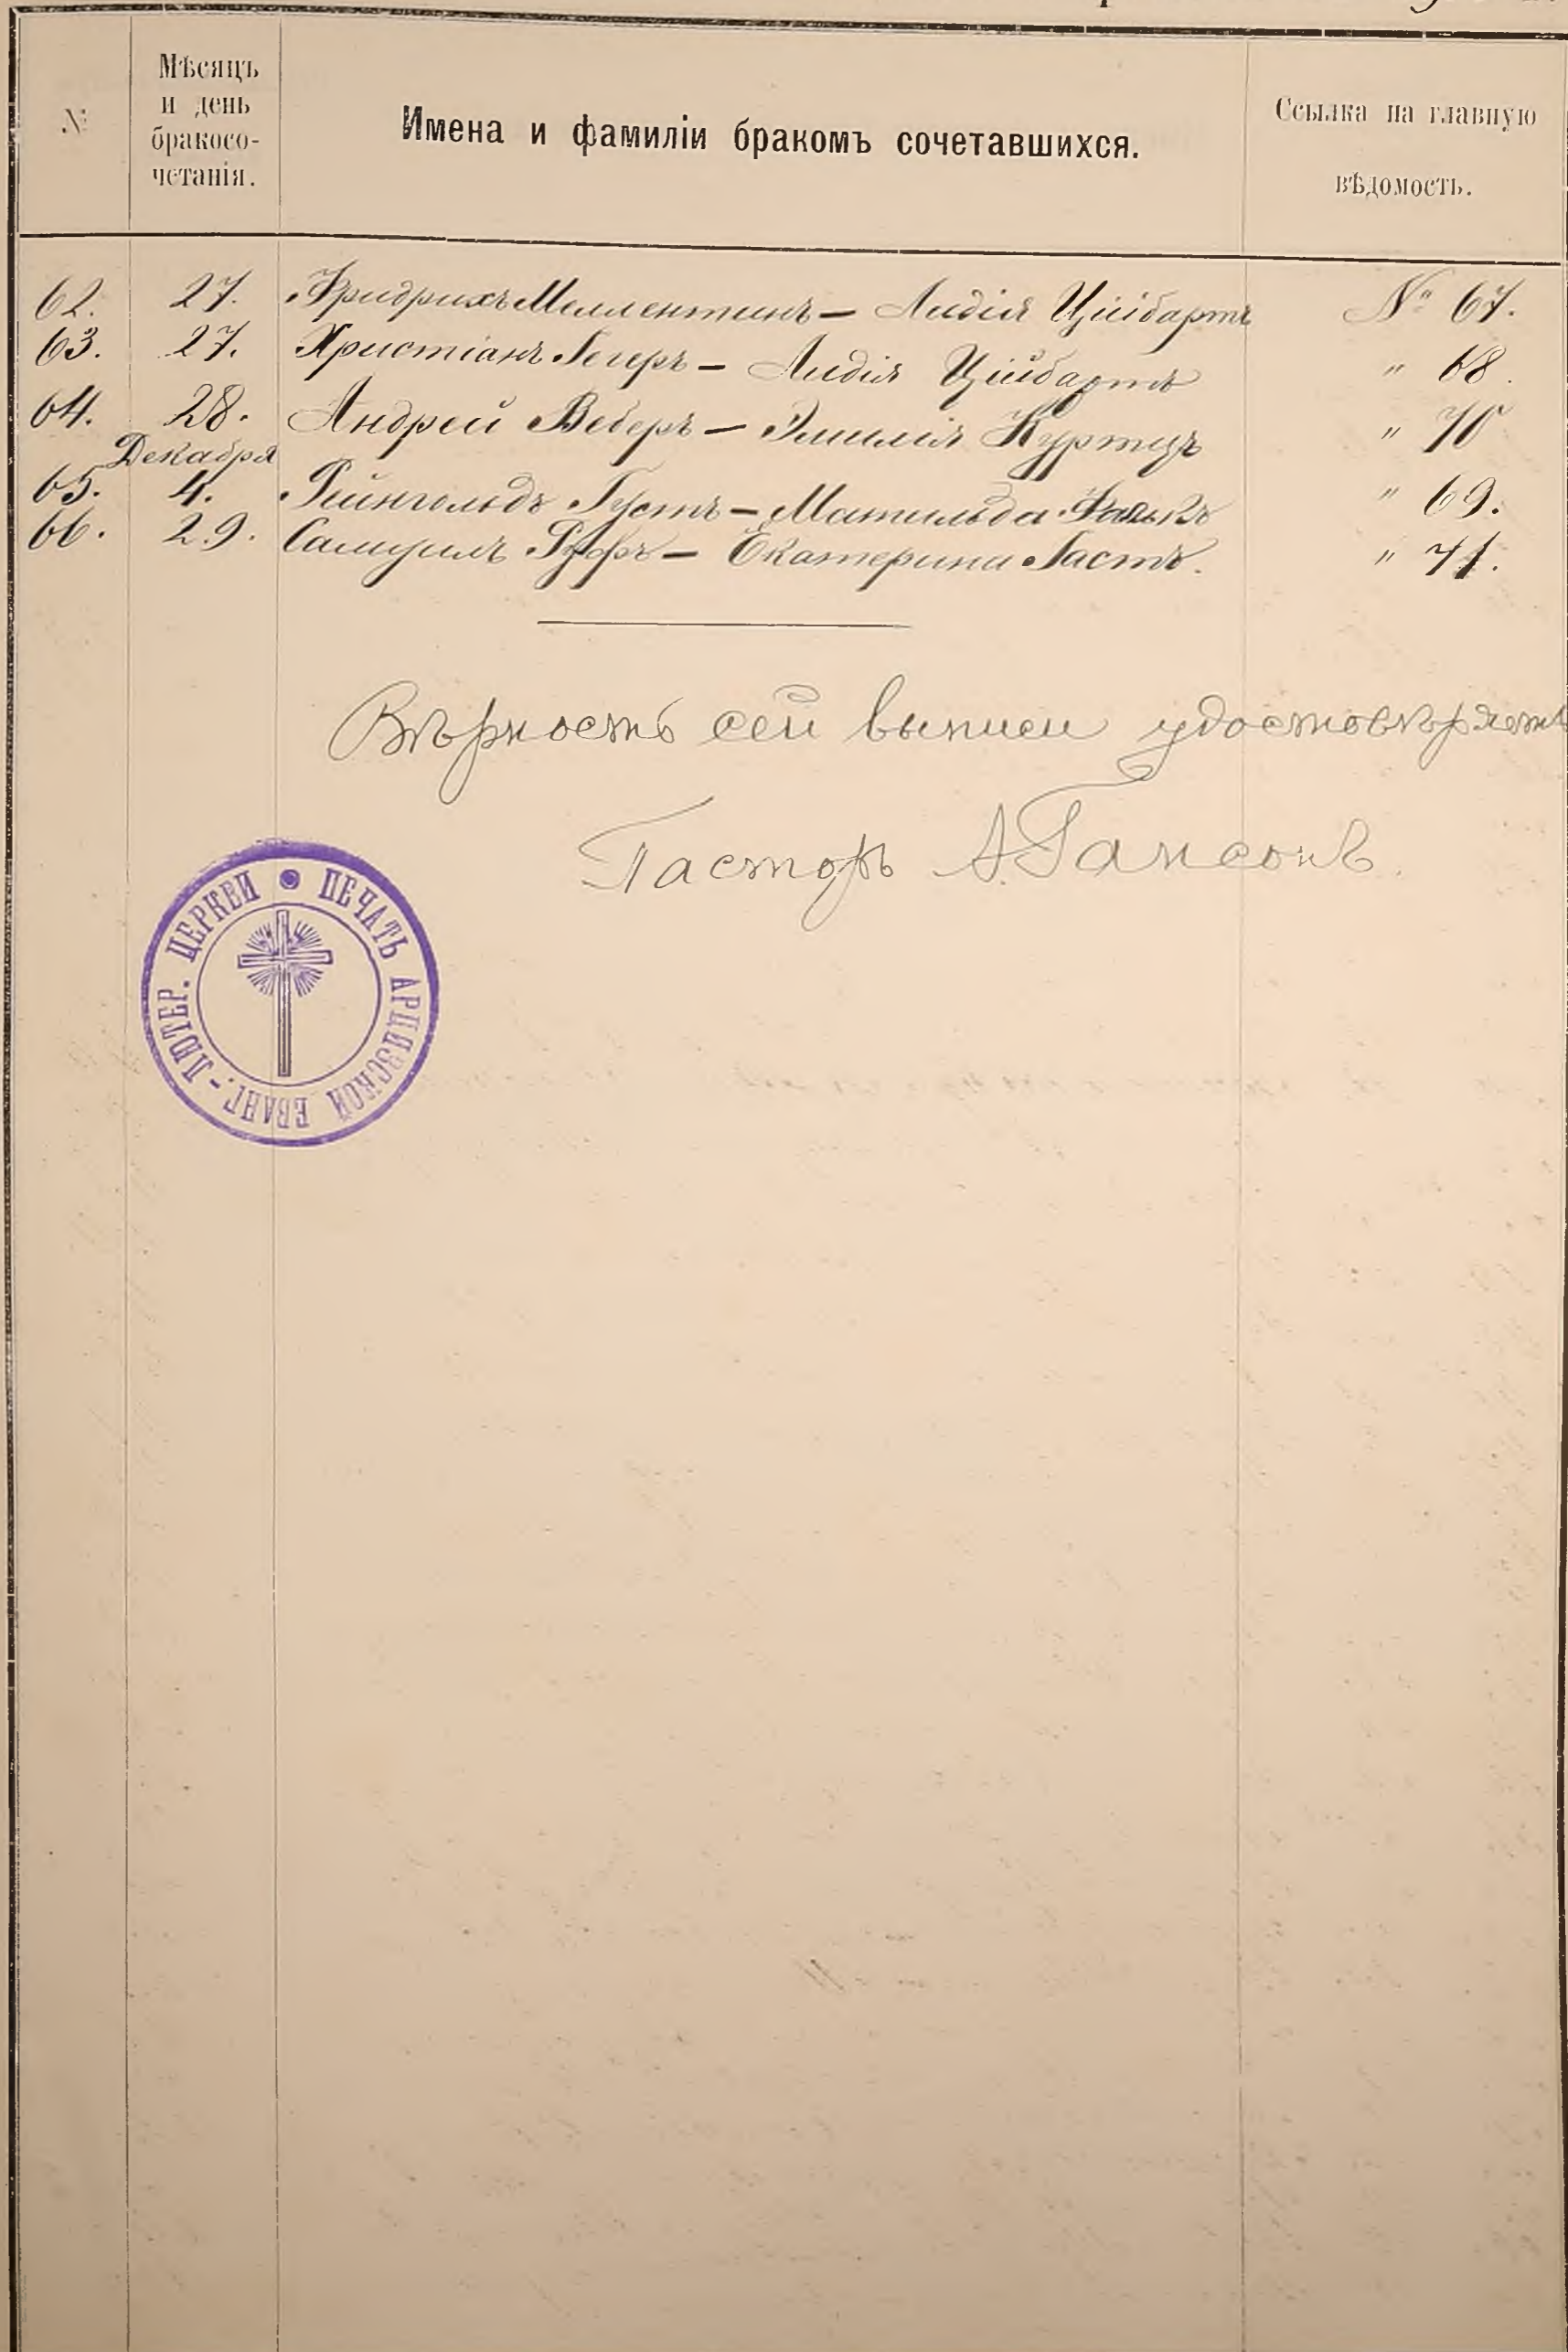 №
Мѣсяцъ
и день
бракосо-
четанія.
Имена и фамиліи бракомъ сочетавшихся.
Ссылка на главную
вѣдомость.
62. 27. Фридрихъ Меллентинъ – Лидія Ційбартъ № 67.
63. 27. Христіанъ Гегеръ – Лидія Ційбартъ " 68.
64. 28. Андрей Веберъ – Эмилія Куртцъ " 70
Декабря
65. 4. Рейнгольдъ Густъ – Матильда Фалькъ " 69.
66. 29. Самуилъ Руфъ – Екатерина Гастъ. " 71.
Вѣрность сей выписи удостовѣряетъ
Пасторъ А. Гансонъ.
ПЕЧАТЬ АРЦИЗСКОЙ ЕВАНГ.-ЛЮТЕР. ЦЕРКВИ